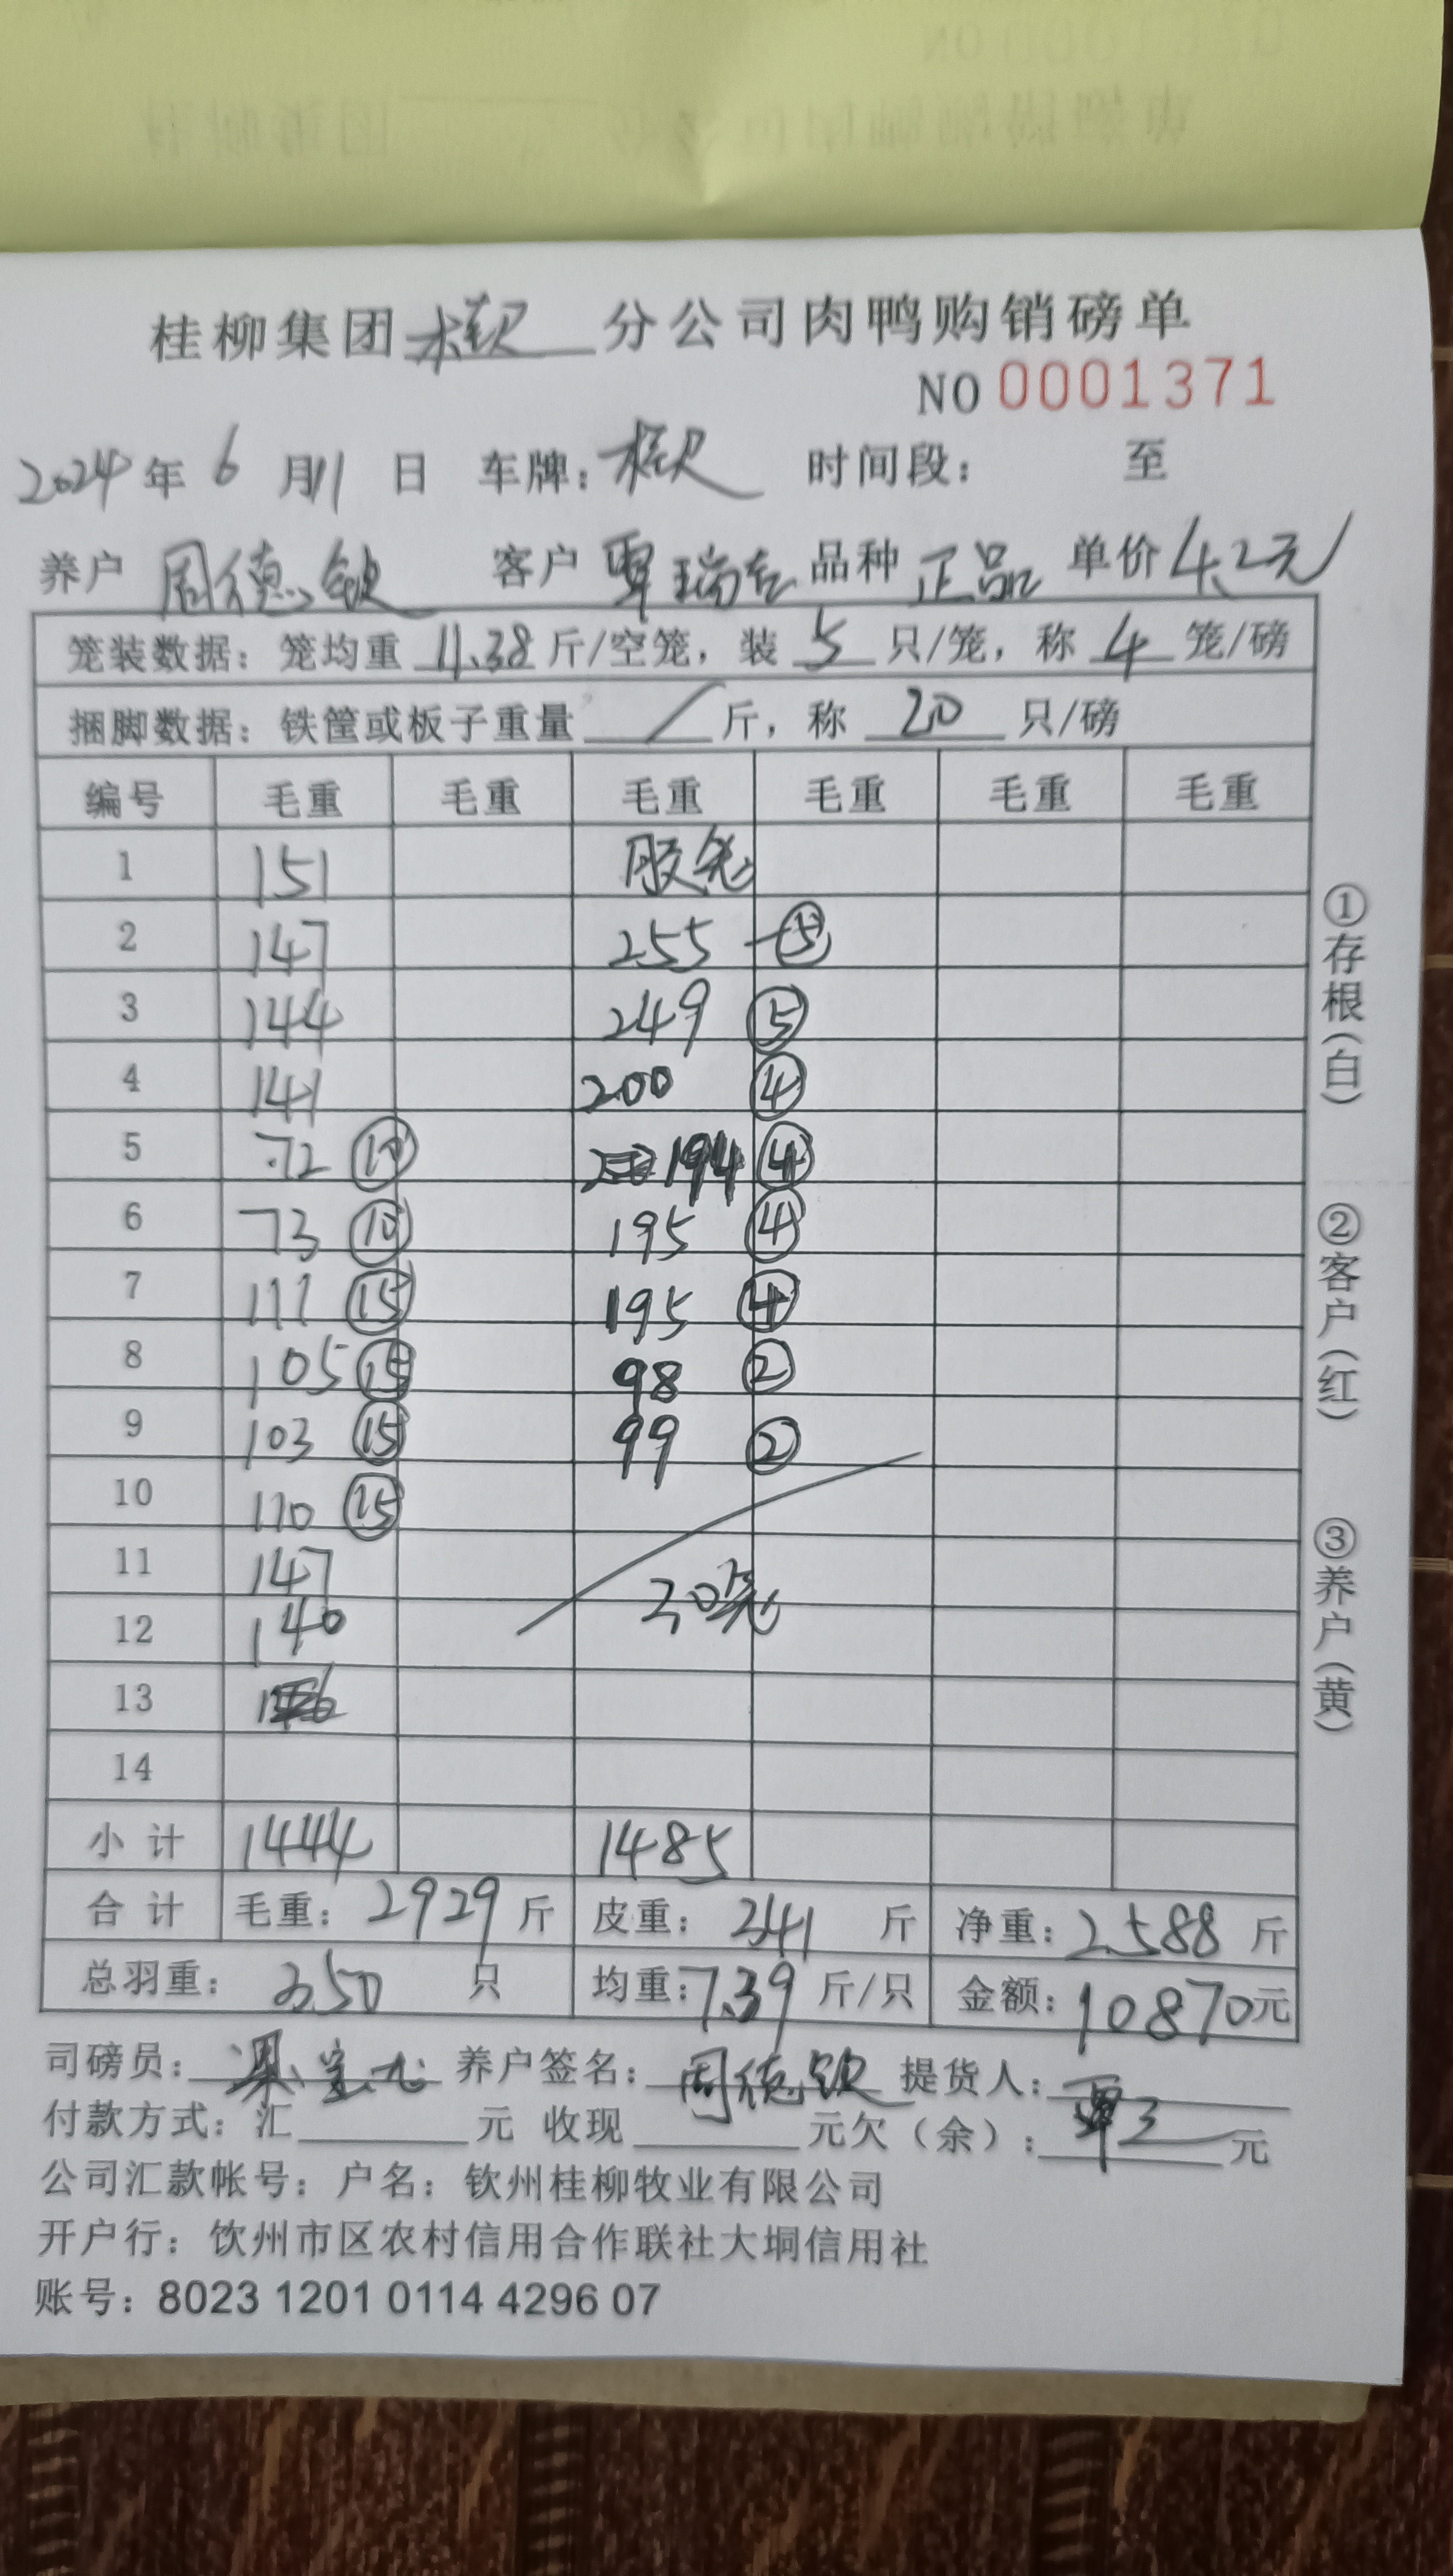 桂柳集团 分公司肉鸭购销磅单
NO 0001371
2024 年 6 月 11 日 车牌: 时间段: 至
养户 周德钦 客户 覃瑞 品种 正品 单价 4.2元
笼装数据: 笼均重 11.38 斤/空笼, 装 5 只/笼, 称 4 笼/磅
捆脚数据: 铁筐或板子重量 / 斤, 称 20 只/磅
编号 毛重 毛重 毛重 毛重 毛重 毛重
1 151 胶笼
2 147 255 ⑤
3 144 249 ⑤
4 141 200 ④
5 72 ⑩ 194 ④
6 73 ⑩ 195 ④
7 111 ⑮ 195 ④
8 105 ⑮ 98 ②
9 103 ⑮ 99 ②
10 110 ⑮
11 147 30笼
12 140
13
14
小计 1444 1485
合计 毛重: 2929 斤 皮重: 341 斤 净重: 2588 斤
总羽重: 350 只 均重: 7.39 斤/只 金额: 10870元
司磅员: 养户签名: 周德钦 提货人:
付款方式: 汇 元 收现 元欠（余）: 覃 元
公司汇款帐号: 户名: 钦州桂柳牧业有限公司
开户行: 钦州市区农村信用合作联社大垌信用社
账号: 8023 1201 0114 4296 07
①存根(白)
②客户(红)
③养户(黄)